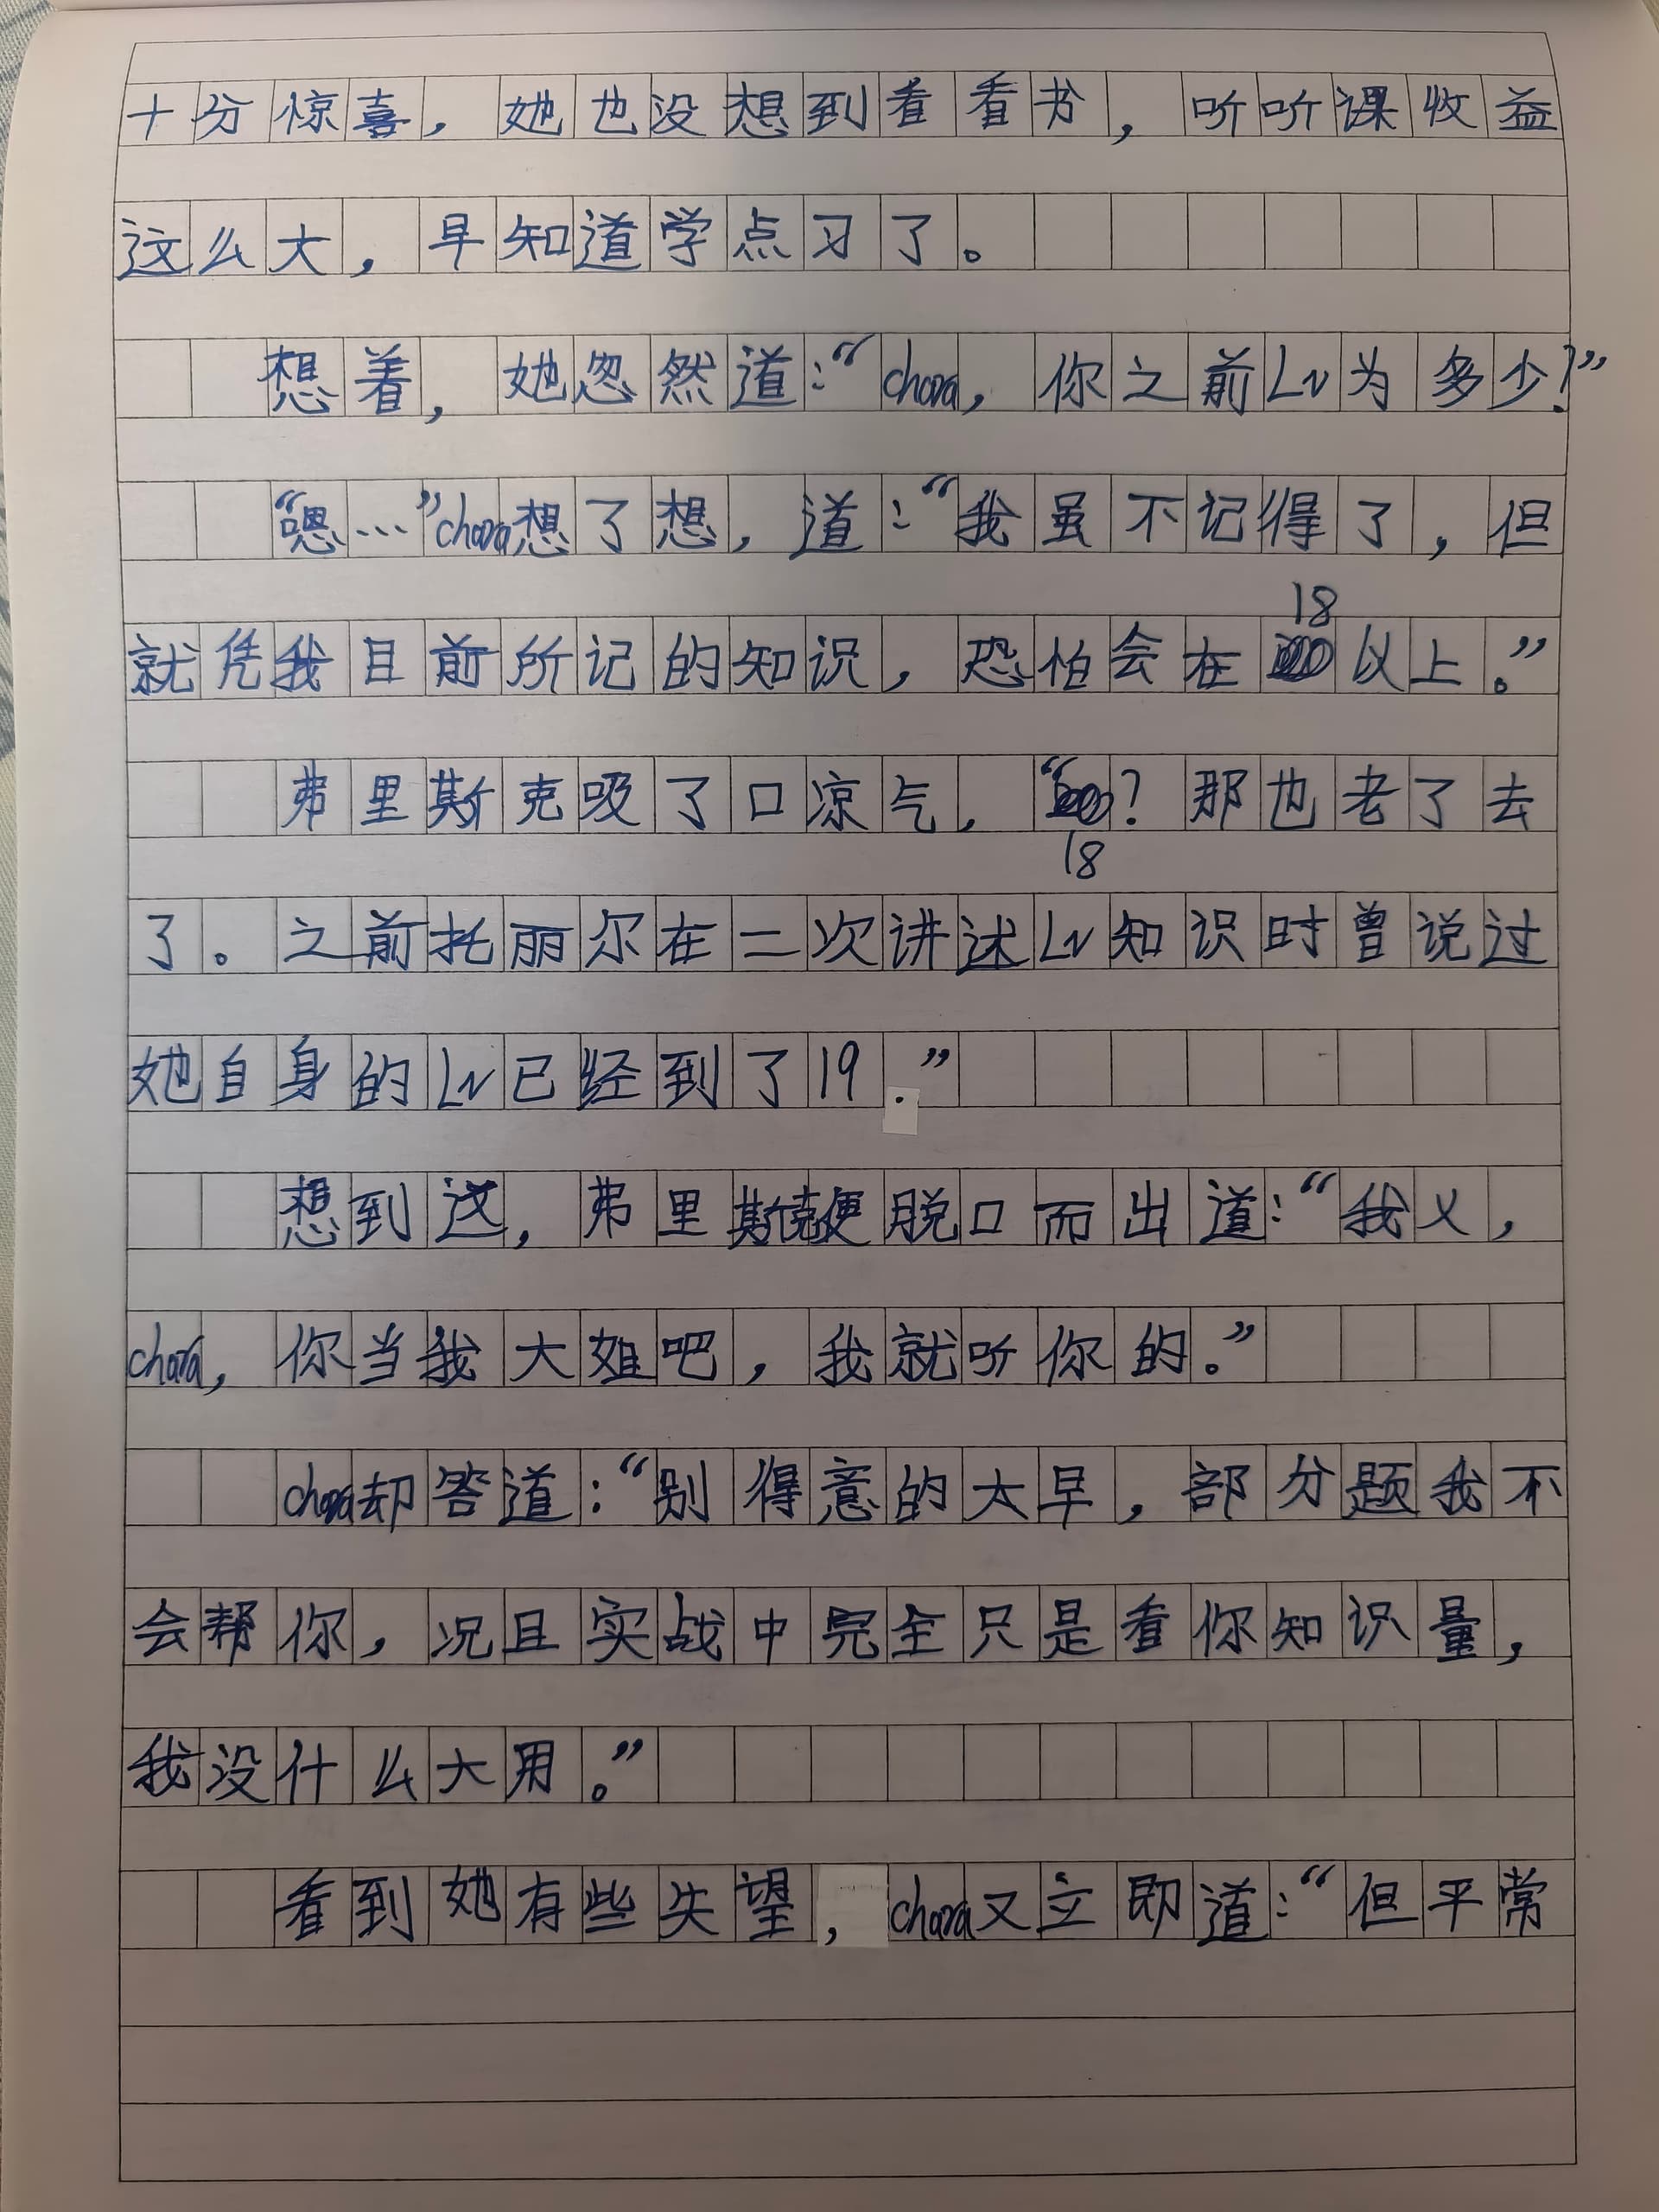 十分惊喜，她也没想到看看书，听听课收益
这么大，早知道学点习了。
想着，她忽然道：“chara，你之前LV为多少？”
“嗯…”chara想了想，道：“我虽不记得了，但
就凭我目前所记的知识，恐怕会在18以上。”
弗里斯克吸了口凉气，“18？那也老了去
了。之前托丽尔在二次讲述LV知识时曾说过
她自身的LV已经到了19.”
想到这，弗里斯克便脱口而出道：“我义，
chara，你当我大姐吧，我就听你的。”
chara却答道：“别得意的太早，部分题我不
会帮你，况且实战中完全只是看你知识量，
我没什么大用。”
看到她有些失望，chara又立即道：“但平常